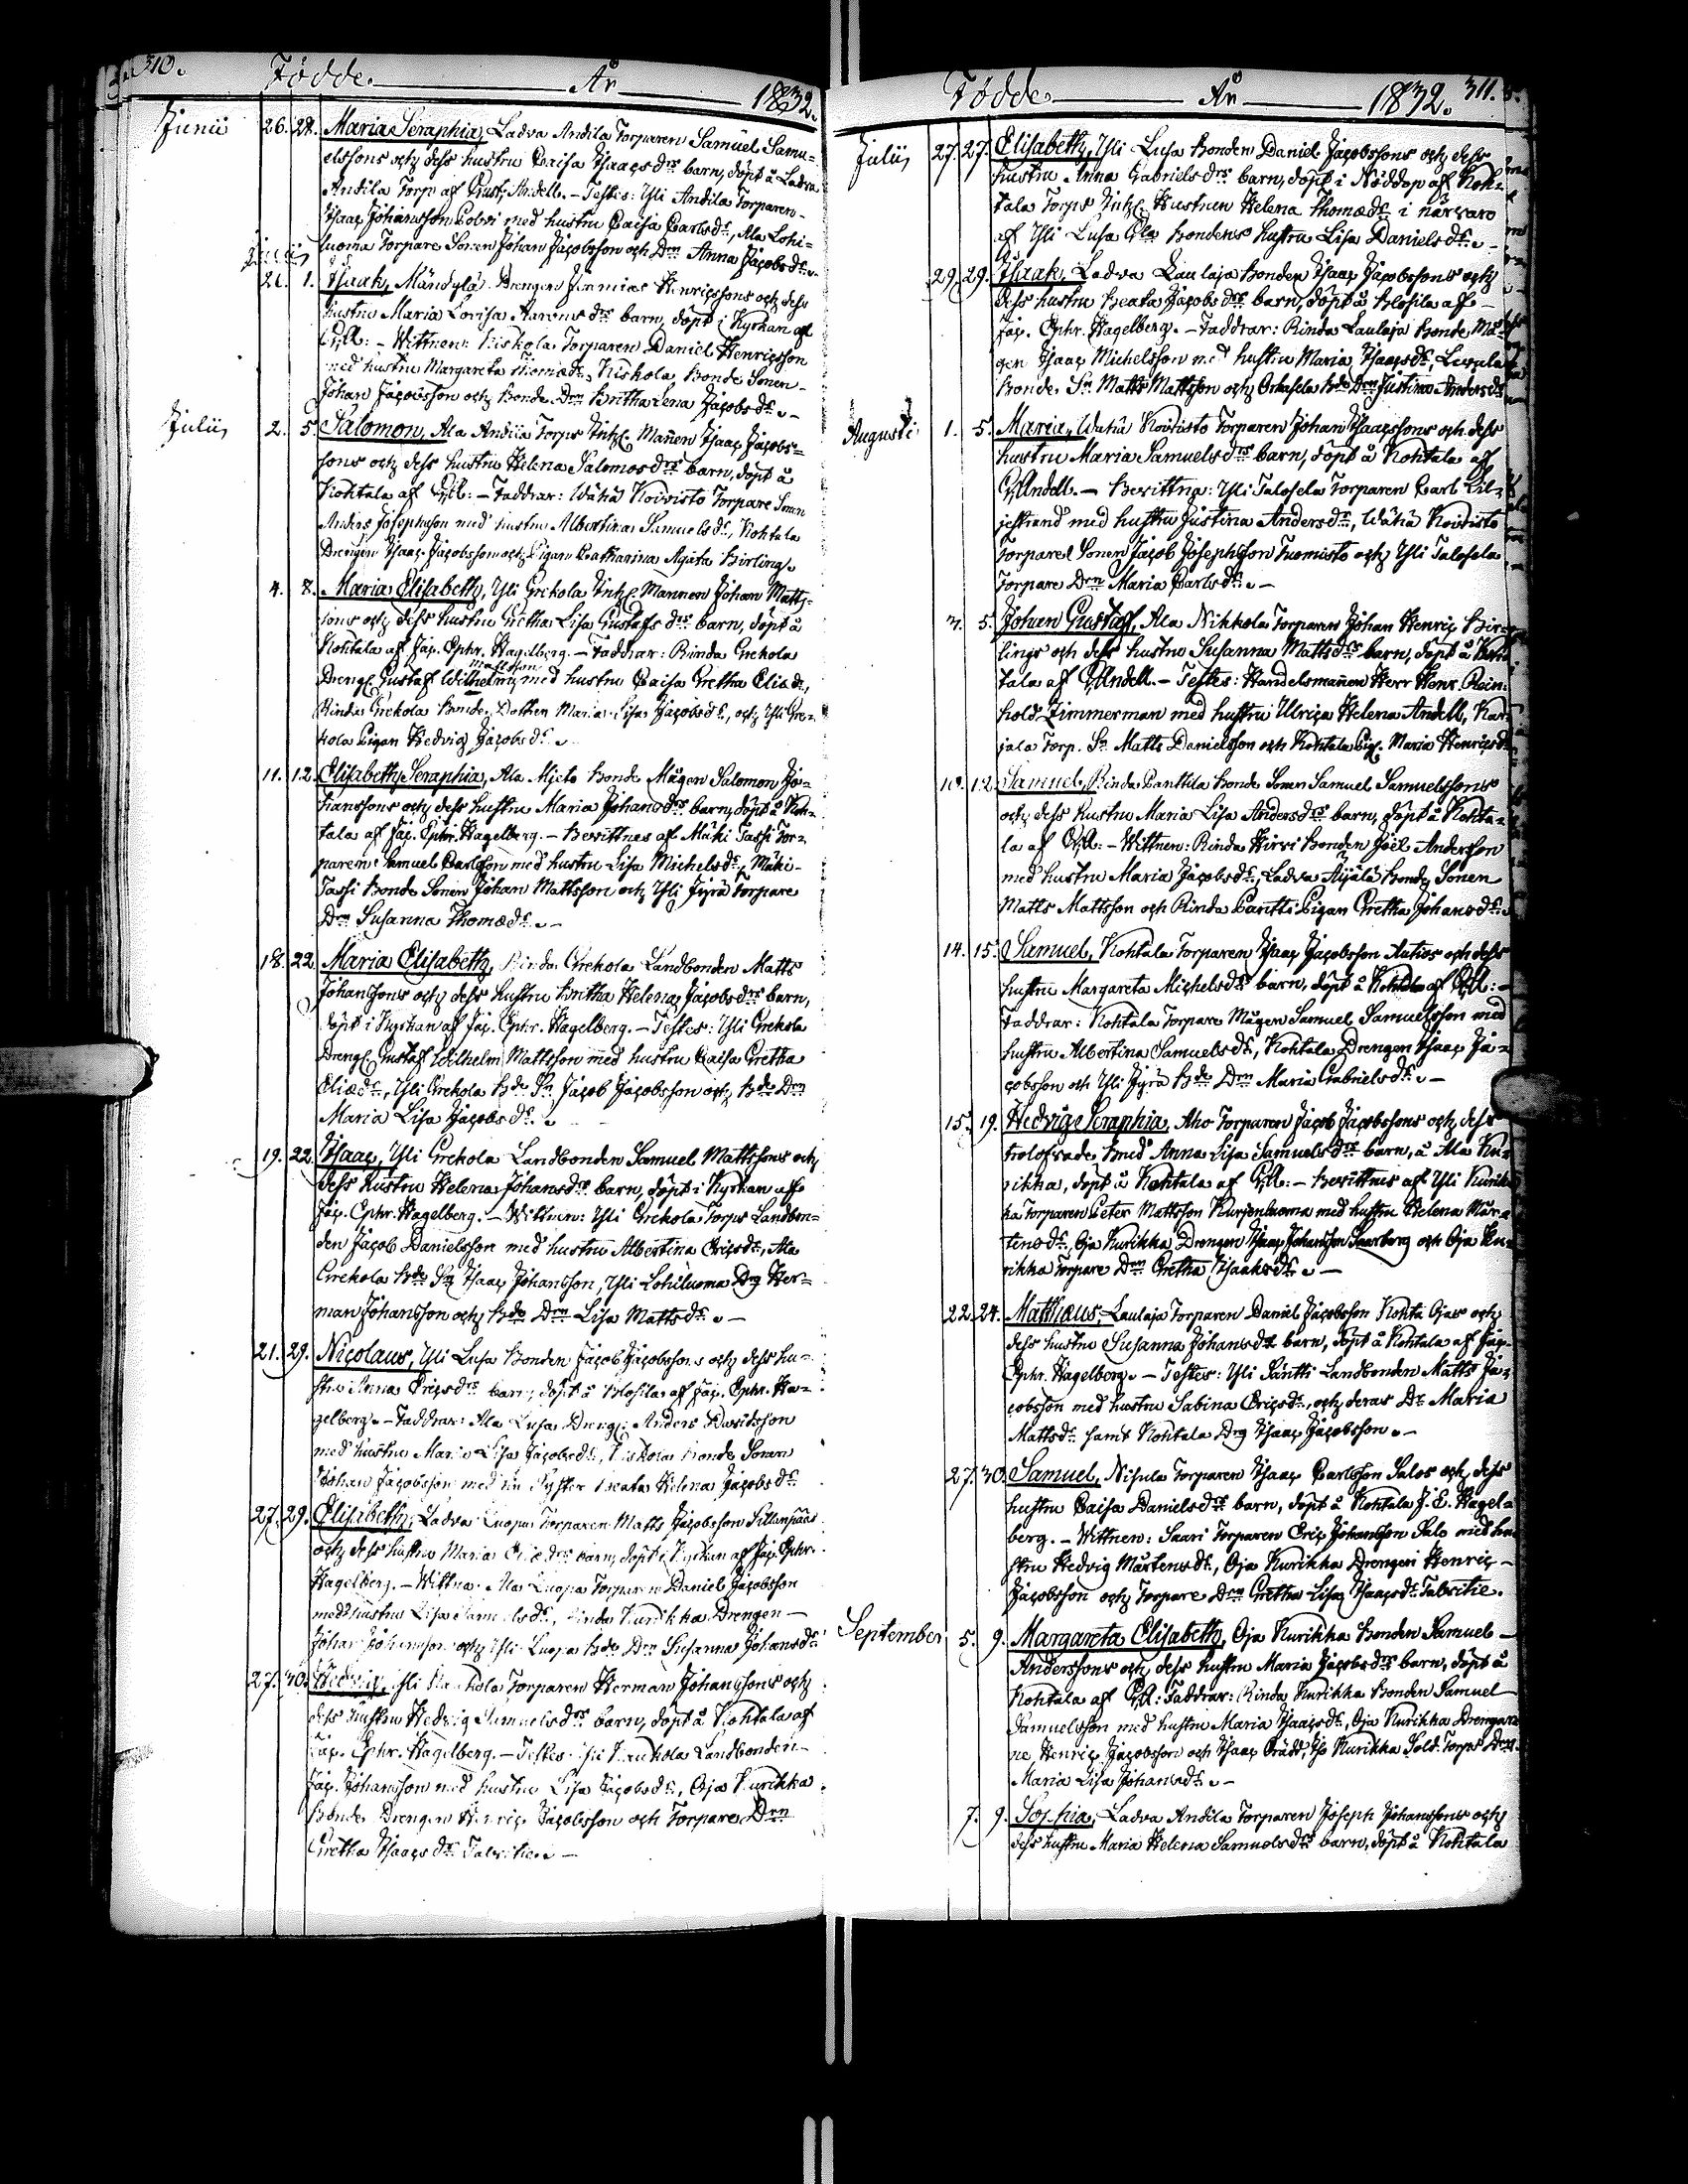 310.
Födde. År 1832.
Junii 26. 28. Maria Seraphia, Ladva Andila Torparen Samuel Samu=
elssons och dess hustru Caisa Isaacs drs barn, döpt å Ladva
Andila Torp af Gust. Andell. – Testes: Yli Andila Torparen
Isaac Johansson med hustru Caisa Carlsdr, Ala Lohi=
luoma Torpare Sonen Johan Jacobsson och Drn Anna Jacobsdr. –
1. Isaak, Mändylä Drengen Jeremias Henricssons och dess
hustru Maria Lovisa Aarons drs barn, döpt i Kyrkan af
– Wittnen: Kiskola Torparen Daniel Henricsson
med hustru Margareta Thomædr, Kiskola Bonde Sonen
Johan Jacobsson och Bonde Drn Britha Lena Jacobsdr. –
Julii 2. 5. Salomon, Ala Andila Torps Inh. Mannen Isaac Jacobs=
sons och dess hustru Helena Salomos drs barn, döpt å
Kohtala af – Faddrar: Wähä Koivisto Torpare Sonen
Anders Josephsson med hustru Albertina Samuelsdr, Kohtala
Drengen Isaac Jacobsson och Pigan Catharina Agata Birling.
4. 8. Maria Elisabeth, Yli Grekola Inh. Mannen Johan Matts=
sons och dess hustru Gretha Lisa Gustafs drs barn, döpt å
Kohtala af Jac. Ephr. Hagelberg. – Faddrar: Rinda Grekola
Mattsson
Dreng. Gustaf Wilhelm, med hustru Caisa Gretha Eliædr,
Rinda Grekola Bonde Dottren Maria Lisa Jacobsdr, och Yli Gre=
kola Pigan Hedvig Jacobsdr.
11. 12. Elisabeth Seraphia, Ala Mieto Bonde Mågen Salomon Jo=
hanssons och dess hustru Maria Johans drs barn, döpt å Koh=
tala af Jac. Ephr. Hagelberg. – Bevittnes af Mäki Tassi Tor=
paren Samuel Carlsson med hustru Lisa Michelsdr, Mäki
Tassi Bonde Sonen Johan Mattsson och Yli Jyrä Torpare
Drn Susanna Thomædr. –
18. 22. Maria Elisabeth, Rinda Grekola Landbonden Matts
Johanssons och dess hustru Britha Helena Jacobs drs barn,
döpt i Kyrkan af Jac. Ephr. Hagelberg. – Testes: Yli Grekola
Dreng. Gustaf Wilhelm Mattsson med hustru Caisa Gretha
Eliædr, Yli Grekola Bde Sn Jacob Jacobsson och Bde Drn
Maria Lisa Jacobsdr.
19. 22. Isaac, Yli Grekola Landbonden Samuel Mattssons och
dess hustru Helena Johans drs barn, döpt i Kyrkan af
Jac. Ephr. Hagelberg. – Wittnen: Yli Grekola Torps Landbon=
den Jacob Danielsson med hustru Albertina Ericsdr, Ala
Grekola Bde Sn Isaac Johansson, Yli Lohiluoma Drg Her=
man Johansson och Bde Drn Lisa Mattsdr. –
21. 29. Nicolaus, Yli Lusa Bonden Jacob Jacobssons och dess hu=
stru Anna Erics drs barn, döpt å Blofila af Jac. Ephr. Ha=
gelberg. – Faddrar: Ala Lusa Dreng. Anders Davidsson
med hustru Maria Lisa Jacobsdr, Kiskola Bonde Sonen
Johan Jacobsson med sin Syster Beata Helena Jacobsdr
27. 29. Elisabeth, Ladva Luopa Torparen Matts Jacobsson Sillanpääs
och dess hustru Maria drs barn, döpt i Kyrkan af Jac. Ephr.
Hagelberg. – Wittna: Ala Luopa Torparen Daniel Jacobsson
med hustru Lisa Samuelsdr, Rinda Kurikka Drengen
Johan Johansson och Yli Luopa Bde Drn Susanna Johansdr
27. 30. Hedvig, Yli Torparen Herman Johanssons och
dess hustru Hedvig Samuels drs barn, döpt å Kohtala af
Jac. Ephr. Hagelberg. – Testes: Landbonden
Jac. Johansson med hustru Lisa Jacobsdr, Oja Kurikka
Bonde Drengen Henric Jacobsson och Torpare Drn
Gretha Isaacsdr Talvitie. –
Födde År 1832. 311.
Julii 27. 27. Elisabeth, Yli Lusa Bonden Daniel Jacobssons och dess
hustru Anna Gabriels drs barn, döpt i Nöddop af Koh=
tala Torps Inh. Hustrun Helena Thomædr i närvaro
af Yli Lusa Gla Bondens hustru Lisa Danielsdr. –
29. 29. Isaak, Ladva Laulaja Bonden Isaac Jacobssons och
dess hustru Beata Jacobs drs barn, döpt å Blofila af
Jac. Ephr. Hagelberg. – Faddrar: Rinda Laulaja Bonde Må=
gen Isaac Michelsson med hustru Maria Isaacsdr,
Bonde Sn Matts Mattsson och Bde Drn Justina Andersdr
Augusti 1. 5. Maria, Wähä Koivisto Torparen Johan Isaacssons och dess
hustru Maria Samuels drs barn, döpt å Kohtala af
G. Andell. – Bevittna: Yli Talosela Torparen Carl Lil=
jestrand med hustru Justina Andersdr, Wähä Koivisto
Torpare Sonen Jacob Josephsson Tuomisto och Yli Talosela
Torpare Drn Maria Carlsdr. –
3. 5. Johan Gustaf, Ala Nikkola Torparen Johan Henric Bir=
lings och dess hustru Susanna Matts drs barn, döpt å Koh=
tala af G. Andell. – Testes: Handelsmannen Herr Henr. Rein=
hold Zimmerman med hustru Ulrica Helena Andell, Kar=
jala Torp. Sn Matts Danielsson och Kohtala Pig. Maria Henricsdr
10. 12. Samuel, Rinda Panttila Bonde Sonen Samuel Samuelssons
och dess hustru Maria Lisa Anders drs barn, döpt å Kohta=
la af – Wittnen: Rinda Hirvi Bonden Joël Andersson
med hustru Maria Jacobsdr, Ladva Äijälä Bonde Sonen
Matts Mattsson och Rinda Pantti Pigan Gretha Johansdr.
14. 15. Samuel, Kohtala Torparen Isaac Jacobsson Autios och dess
hustru Margareta Michels drs barn, döpt å Kohtala af
Faddrar: Kohtala Torpare Mågen Samuel Samuelsson med
hustru Albertina Samuelsdr, Kohtala Drengen Isaac Ja=
cobsson och Yli Jyrä Bde Drn Maria Gabrielsdr. –
15. 19. Hedvig Seraphia, Aho Torparen Jacob Jacobssons och dess
trolofvade Brud Anna Lisa Samuels drs barn, å Ala Ku=
rikka, döpt å Kohtala af – Bevittnes af Yli Kurik=
ka Torparen Peter Mattsson Kurjenluoma med hustru Helena Mår=
tensdr, Oja Kurikka Drengen Isaac Johansson Saarberg och Oja Ku=
rikka Torpare Drn Gretha Isaaksdr. –
22. 24. Matthæus, Laulaja Torparen Daniel Jacobsson Kohta Ojas och
dess hustru Susanna Johans drs barn, döpt å Kohtala af Jac.
Ephr. Hagelberg. – Testes: Yli Päntti Landbonden Matts Ja=
cobsson med hustru Sabina Ericsdr, och deras Dr Maria
Mattsdr samt Kohtala Drg Isaac Jacobsson. –
27. 30. Samuel, Nisula Torparen Isaac Carlsson Salos och dess
hustru Caisa Daniels drs barn, döpt å Kohtala J. E. Hagel=
berg. – Wittnen: Saari Torparen Eric Johansson Salo med hu=
stru Hedvig Mårtensdr, Oja Kurikka Drengen Henric
Jacobsson och Torpare Drn Gretha Lisa Isaacsdr Talvitie.
September 5. 9. Margareta Elisabeth, Oja Kurikka Bonden Samuel
Anderssons och dess hustru Maria Jacobs drs barn, döpt å
Kohtala af Faddrar: Rinda Kurikka Bonden Samuel
Samuelsson med hustru Maria Isaacsdr, Oja Kurikka Drengar=
ne Henric Jacobsson och Isaac Brådd, Iso Kurikka Sold. Torps Drn
Maria Lisa Johansdr. –
7. 9. Sophia, Ladva Andila Torparen Joseph Johanssons och
dess hustru Maria Helena Samuels drs barn, döpt å Kohtala